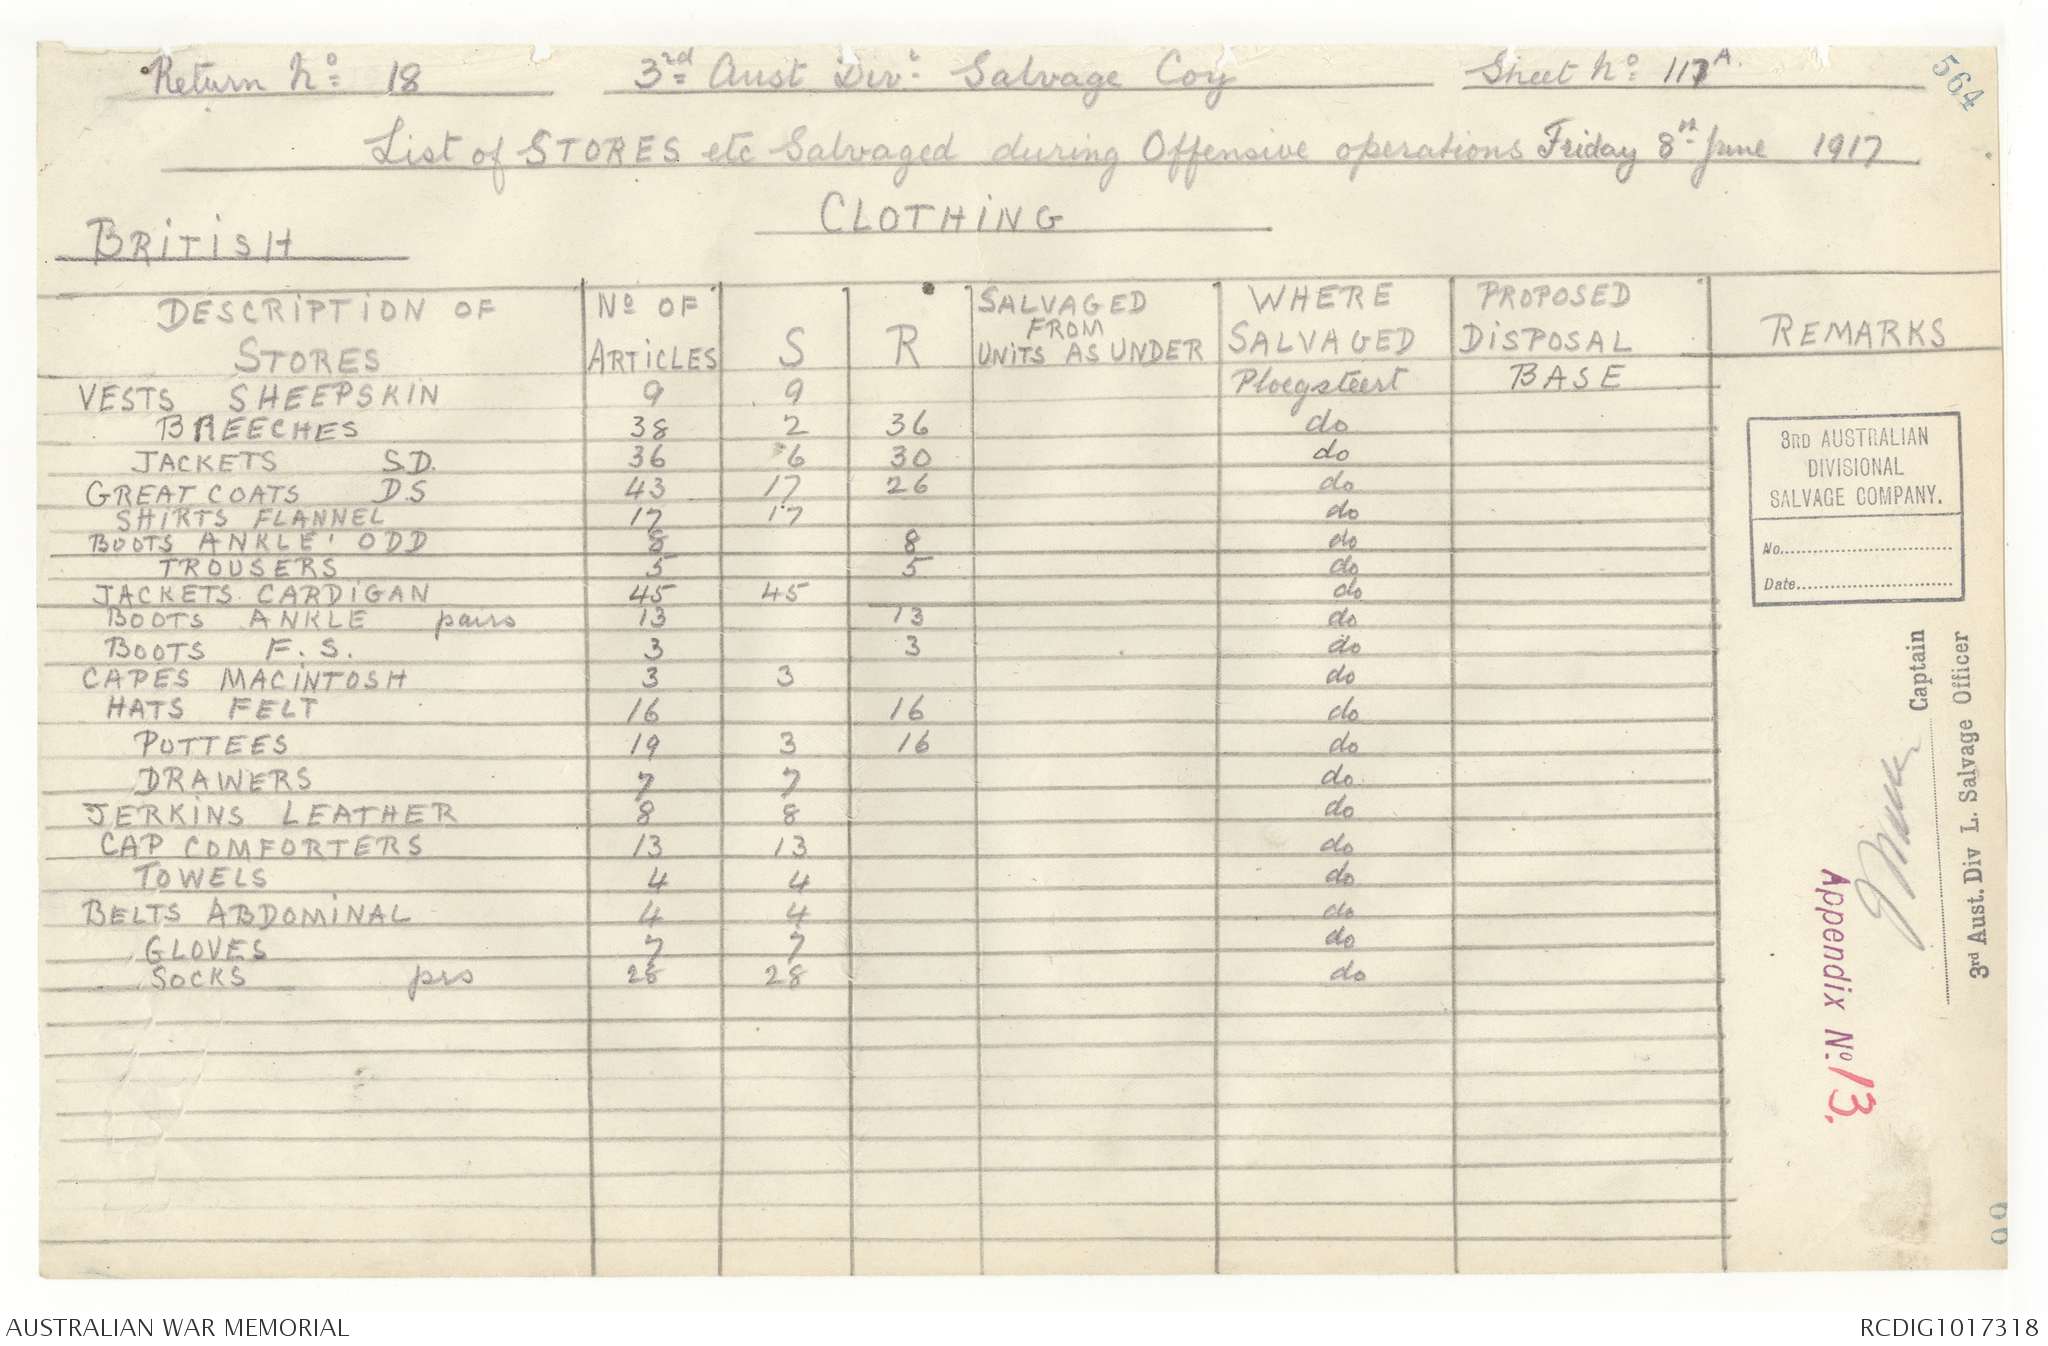 Return No. 18 3rd Aust Div. Salvage Coy Sheet No. 117A.
564
List of STORES etc Salvaged during Offensive operations Friday 8th June 1917
CLOTHING
BRITISH
DESCRIPTION OF STORES | No OF ARTICLES | S | R | SALVAGED FROM UNITS AS UNDER | WHERE SALVAGED | PROPOSED DISPOSAL | REMARKS
VESTS SHEEPSKIN | 9 | 9 | | | Ploegsteert | BASE
BREECHES | 38 | 2 | 36 | | do
JACKETS S.D. | 36 | 6 | 30 | | do
GREAT COATS D.S | 43 | 17 | 26 | | do
SHIRTS FLANNEL | 17 | 17 | | | do
BOOTS ANKLE ODD | 8 | | 8 | | do
TROUSERS | 5 | | 5 | | do
JACKETS CARDIGAN | 45 | 45 | | | do
BOOTS ANKLE pairs | 13 | | 13 | | do
BOOTS F.S. | 3 | | 3 | | do
CAPES MACINTOSH | 3 | 3 | | | do
HATS FELT | 16 | | 16 | | do
PUTTEES | 19 | 3 | 16 | | do
DRAWERS | 7 | 7 | | | do
JERKINS LEATHER | 8 | 8 | | | do
CAP COMFORTERS | 13 | 13 | | | do
TOWELS | 4 | 4 | | | do
BELTS ABDOMINAL | 4 | 4 | | | do
GLOVES | 7 | 7 | | | do
SOCKS prs | 28 | 28 | | | do
3RD AUSTRALIAN
DIVISIONAL
SALVAGE COMPANY.
No.
Date
Captain
3rd Aust. Div L. Salvage Officer
Appendix No. 13.
AUSTRALIAN WAR MEMORIAL
RCDIG1017318